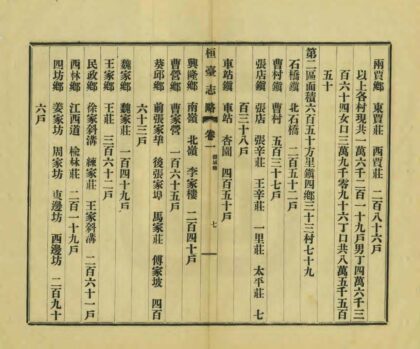 兩賈鄉 東賈莊 西賈莊 二百八十六戶
以上各村現共一萬六千二百一十九戶男丁四萬六千三
百六十四女口三萬九千零九十六丁口共八萬五千五百
五十
第二區面積六百五十方里鎮四鄉三十三村七十九
石橋鎮 北石橋 二百五十二戶
曹村鎮 曹村 五百三十七戶
張店鎮 張店 張辛莊 王辛莊 一里莊 太平莊 七
百三十八戶
車站鎮 車站 杏園 四百五十戶
桓臺志略 卷一 七
興隆鄉 南嶺 北嶺 李家樓 二百四十戶
曹營鄉 曹家營 一百六十五戶
葵邱鄉 前張家埠 後張家埠 馬家莊 傅家坡 四百
六十三戶
魏家鄉 魏家莊 一百四十九戶
王家鄉 王莊 三百六十二戶
民政鄉 徐家斜溝 練家莊 王家斜溝 二百六十一戶
西林鄉 江西道 楡林莊 二百一十九戶
四坊鄉 姜家坊 周家坊 東邊坊 西邊坊 二百九十
六戶